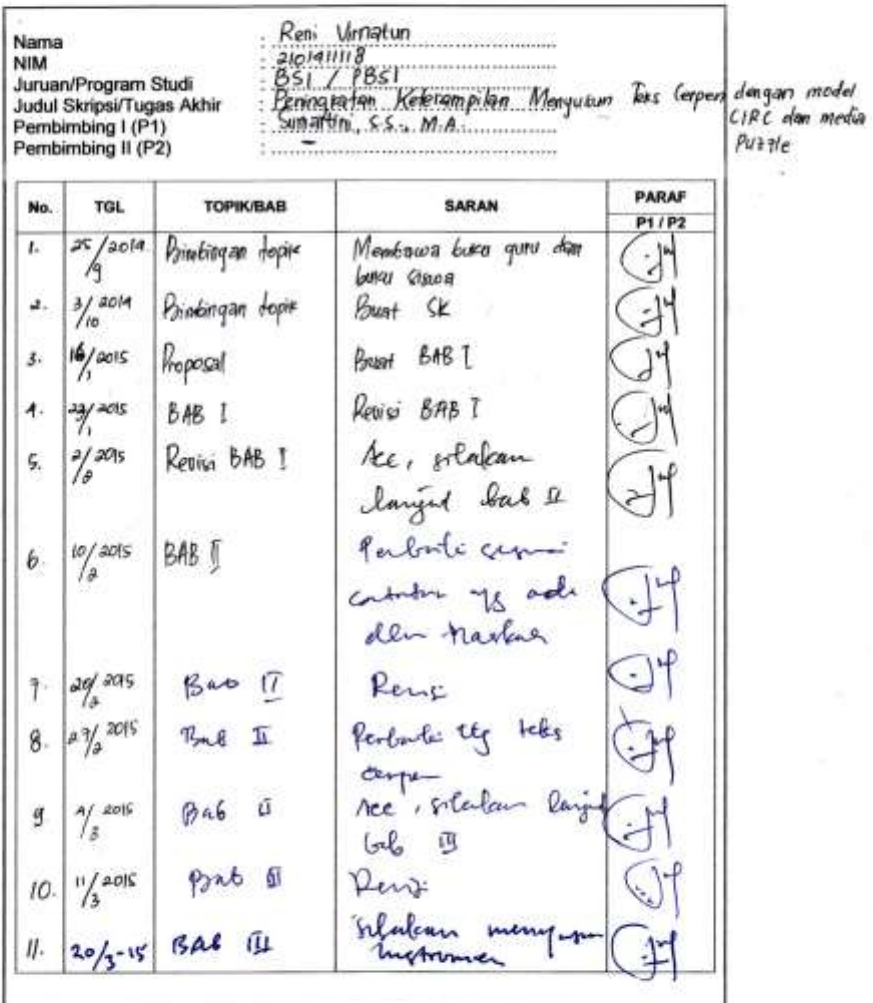 Nama : Reni Virnatun
NIM : 2101411118
Juruan/Program Studi : BSI / PBSI
Judul Skripsi/Tugas Akhir : Peningkatan Keterampilan Menyusun Teks Cerpen dengan model
CIRC dan media
Puzzle
Pembimbing I (P1) : Sumartini, S.S., M.A.
Pembimbing II (P2) : -
No. TGL TOPIK/BAB SARAN PARAF
P1 / P2
1. 25/9 2014 Bimbingan topik Membawa buku guru dan
buku siswa
2. 3/10 2014 Bimbingan topik Buat SK
3. 16/1 2015 Proposal Buat BAB I
4. 23/1 2015 BAB I Revisi BAB I
5. 2/2 2015 Revisi BAB I Acc, silakan
lanjut bab II
6. 10/2 2015 BAB II Perbaiki sesuai
catatan yg ada
dlm naskah
7. 20/2 2015 Bab II Revisi
8. 27/2 2015 Bab II Perbaiki ttg teks
cerpen
9 4/3 2015 Bab II Acc, silakan lanjut
bab III
10. 11/3 2015 Bab III Revisi
11. 20/3-15 BAB III silakan menyusun
instrumen